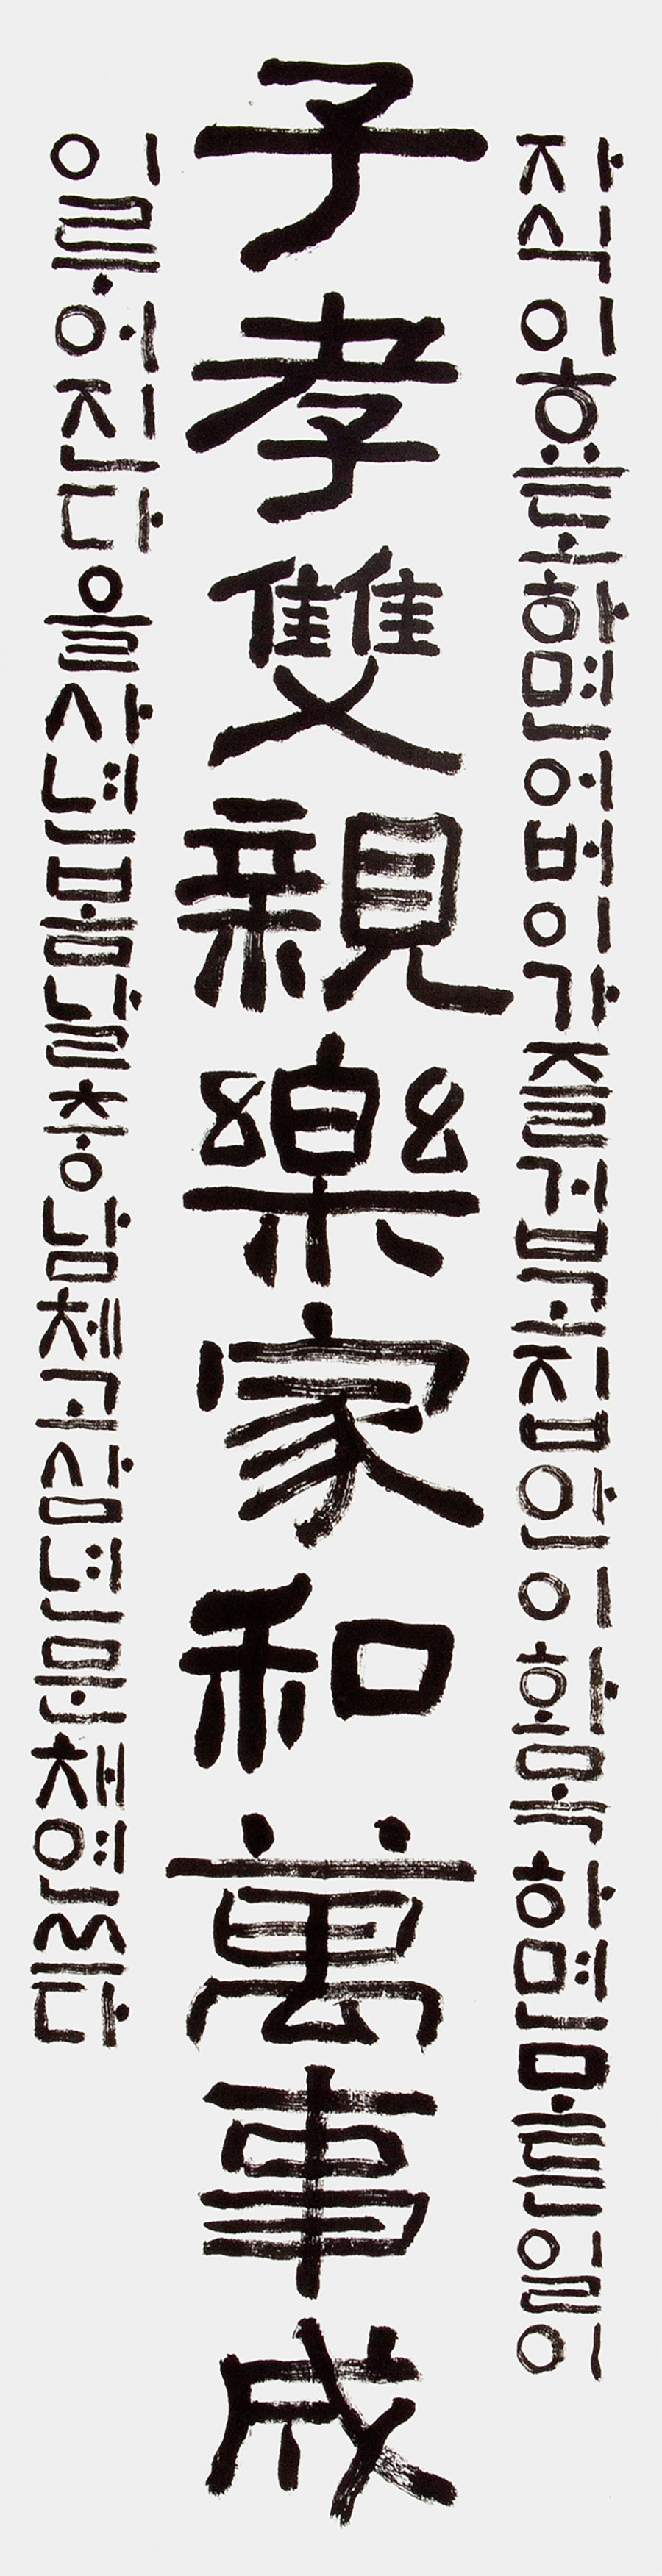 자식이효도하면어버이가즐겁고집안이화목하면모든일이
子孝雙親樂家和萬事成
이루어진다을사년봄날충남체고삼년문채연쓰다